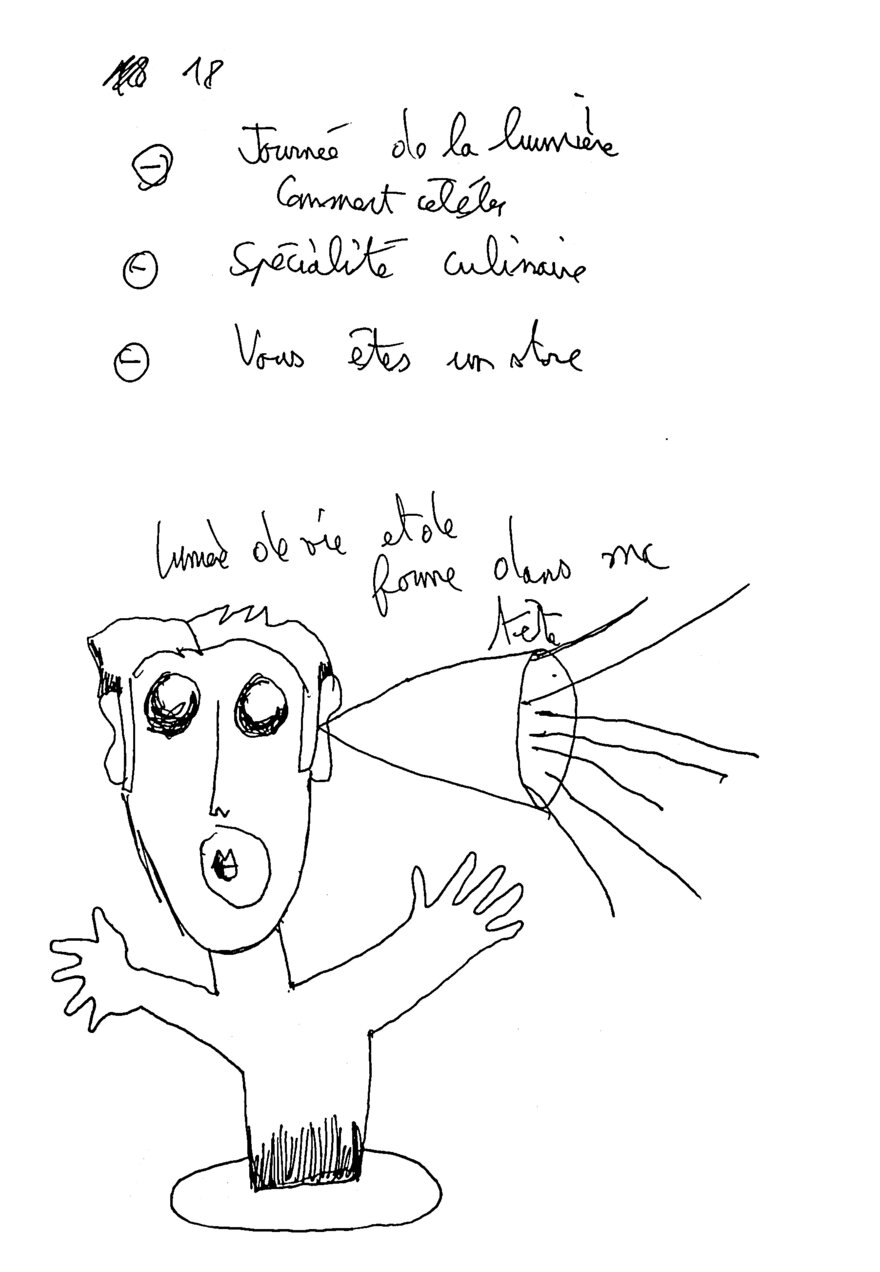 18
Journée de la lumière
Comment
Spécialité culinaire
Vous êtes un store
lumière de vie et de
forme dans ma
tête